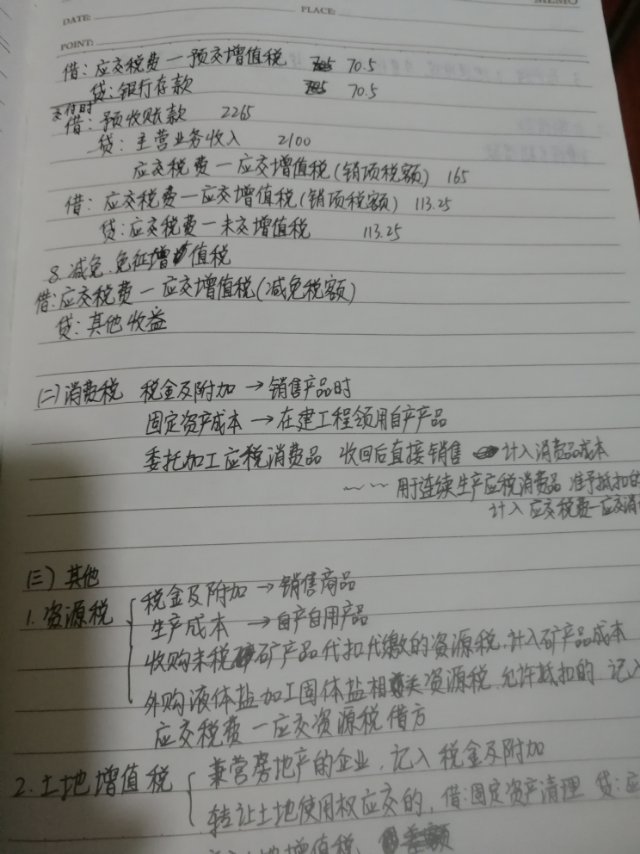 MEMO
DATE:
PLACE:
POINT:
借：应交税费—预交增值税 70.5
贷：银行存款 70.5
交付时
借：预收账款 2265
贷：主营业务收入 2100
应交税费—应交增值税(销项税额) 165
借：应交税费—应交增值税(销项税额) 113.25
贷：应交税费—未交增值税 113.25
8.减免、免征增值税
借：应交税费—应交增值税(减免税额)
贷：其他收益
(二)消费税 税金及附加→销售产品时
固定资产成本→在建工程领用自产产品
委托加工应税消费品 收回后直接销售 计入消费品成本
～～ 用于连续生产应税消费品 准予抵扣的
计入 应交税费—应交消
(三)其他
1.资源税 税金及附加→销售商品
生产成本→自产自用产品
收购未税矿产品代扣代缴的资源税，计入矿产品成本
外购液体盐加工固体盐相关资源税，允许抵扣的，记入
应交税费—应交资源税 借方
2.土地增值税 兼营房地产的企业，记入 税金及附加
转让土地使用权应交的，借：固定资产清理 贷：应
土地增值税